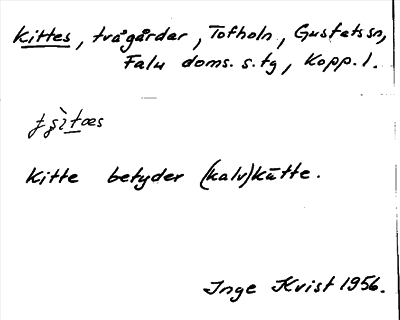 Kittes, tvågårdar, Tofholn, Gustafs sn,
Falu doms. s. tg, Kopp. l.
Kitte betyder (kalv)kätte.
Inge Kvist 1956.